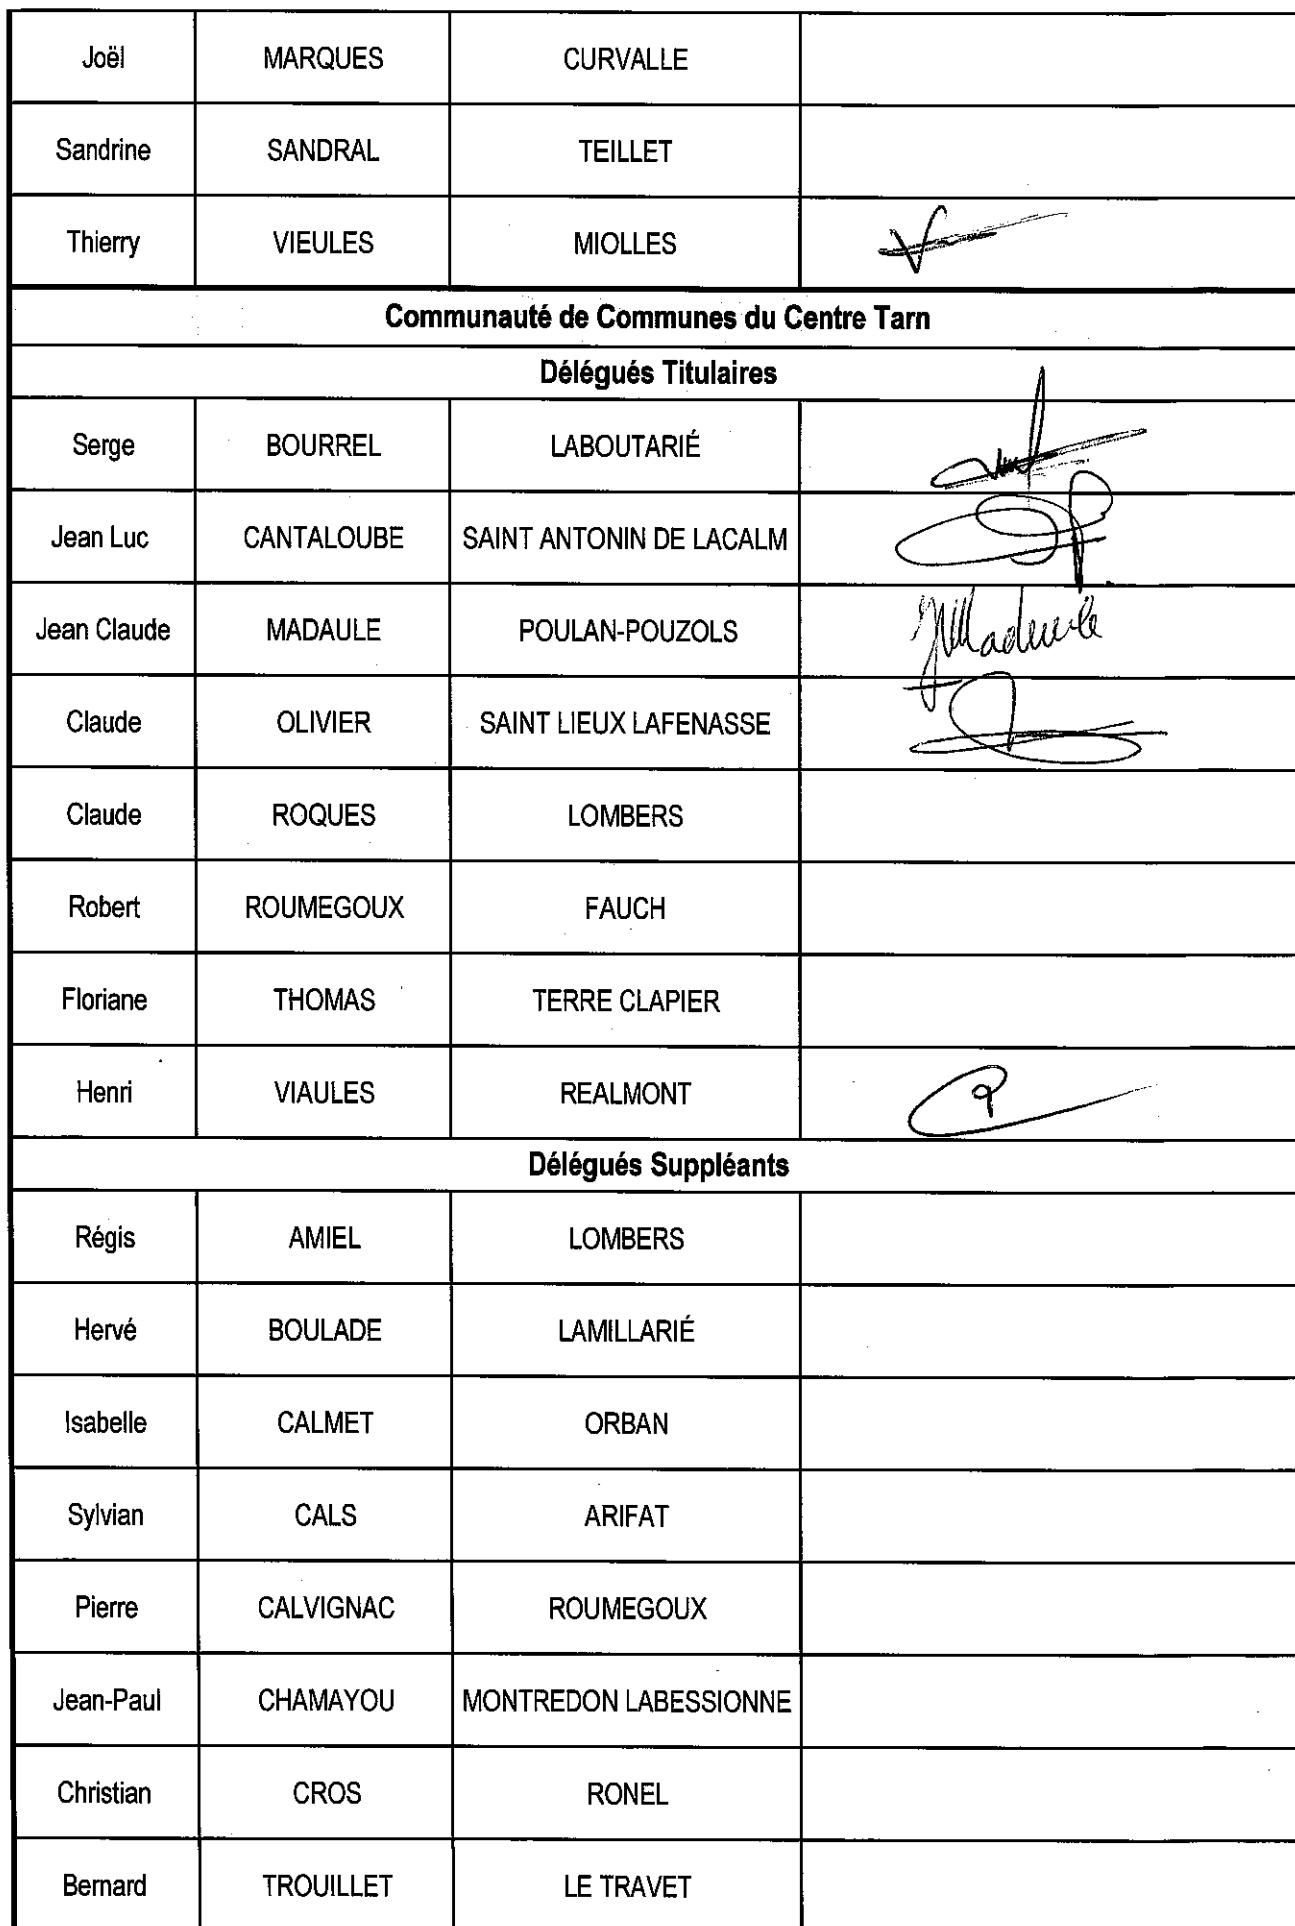 Joël MARQUES CURVALLE
Sandrine SANDRAL TEILLET
Thierry VIEULES MIOLLES
Communauté de Communes du Centre Tarn
Délégués Titulaires
Serge BOURREL LABOUTARIÉ
Jean Luc CANTALOUBE SAINT ANTONIN DE LACALM
Jean Claude MADAULE POULAN-POUZOLS
Claude OLIVIER SAINT LIEUX LAFENASSE
Claude ROQUES LOMBERS
Robert ROUMEGOUX FAUCH
Floriane THOMAS TERRE CLAPIER
Henri VIAULES REALMONT
Délégués Suppléants
Régis AMIEL LOMBERS
Hervé BOULADE LAMILLARIÉ
Isabelle CALMET ORBAN
Sylvian CALS ARIFAT
Pierre CALVIGNAC ROUMEGOUX
Jean-Paul CHAMAYOU MONTREDON LABESSIONNE
Christian CROS RONEL
Bernard TROUILLET LE TRAVET